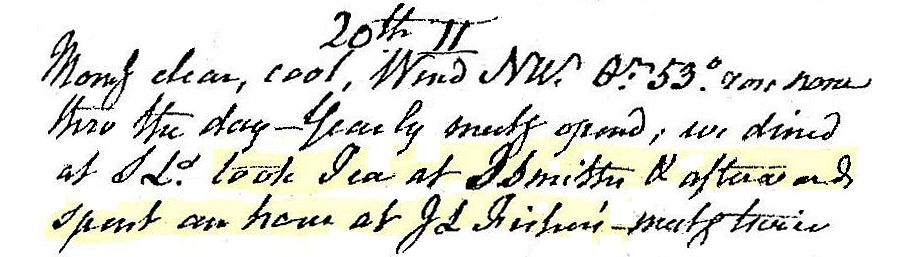 20th II
Morng clear, cool, Wind NW. Or. 53° rose none
thro the day – Yearly meetg opend, we dined
at S Ls. took Tea at J Smiths & afterwards
spent an hour at J L Fishers – meetg twice